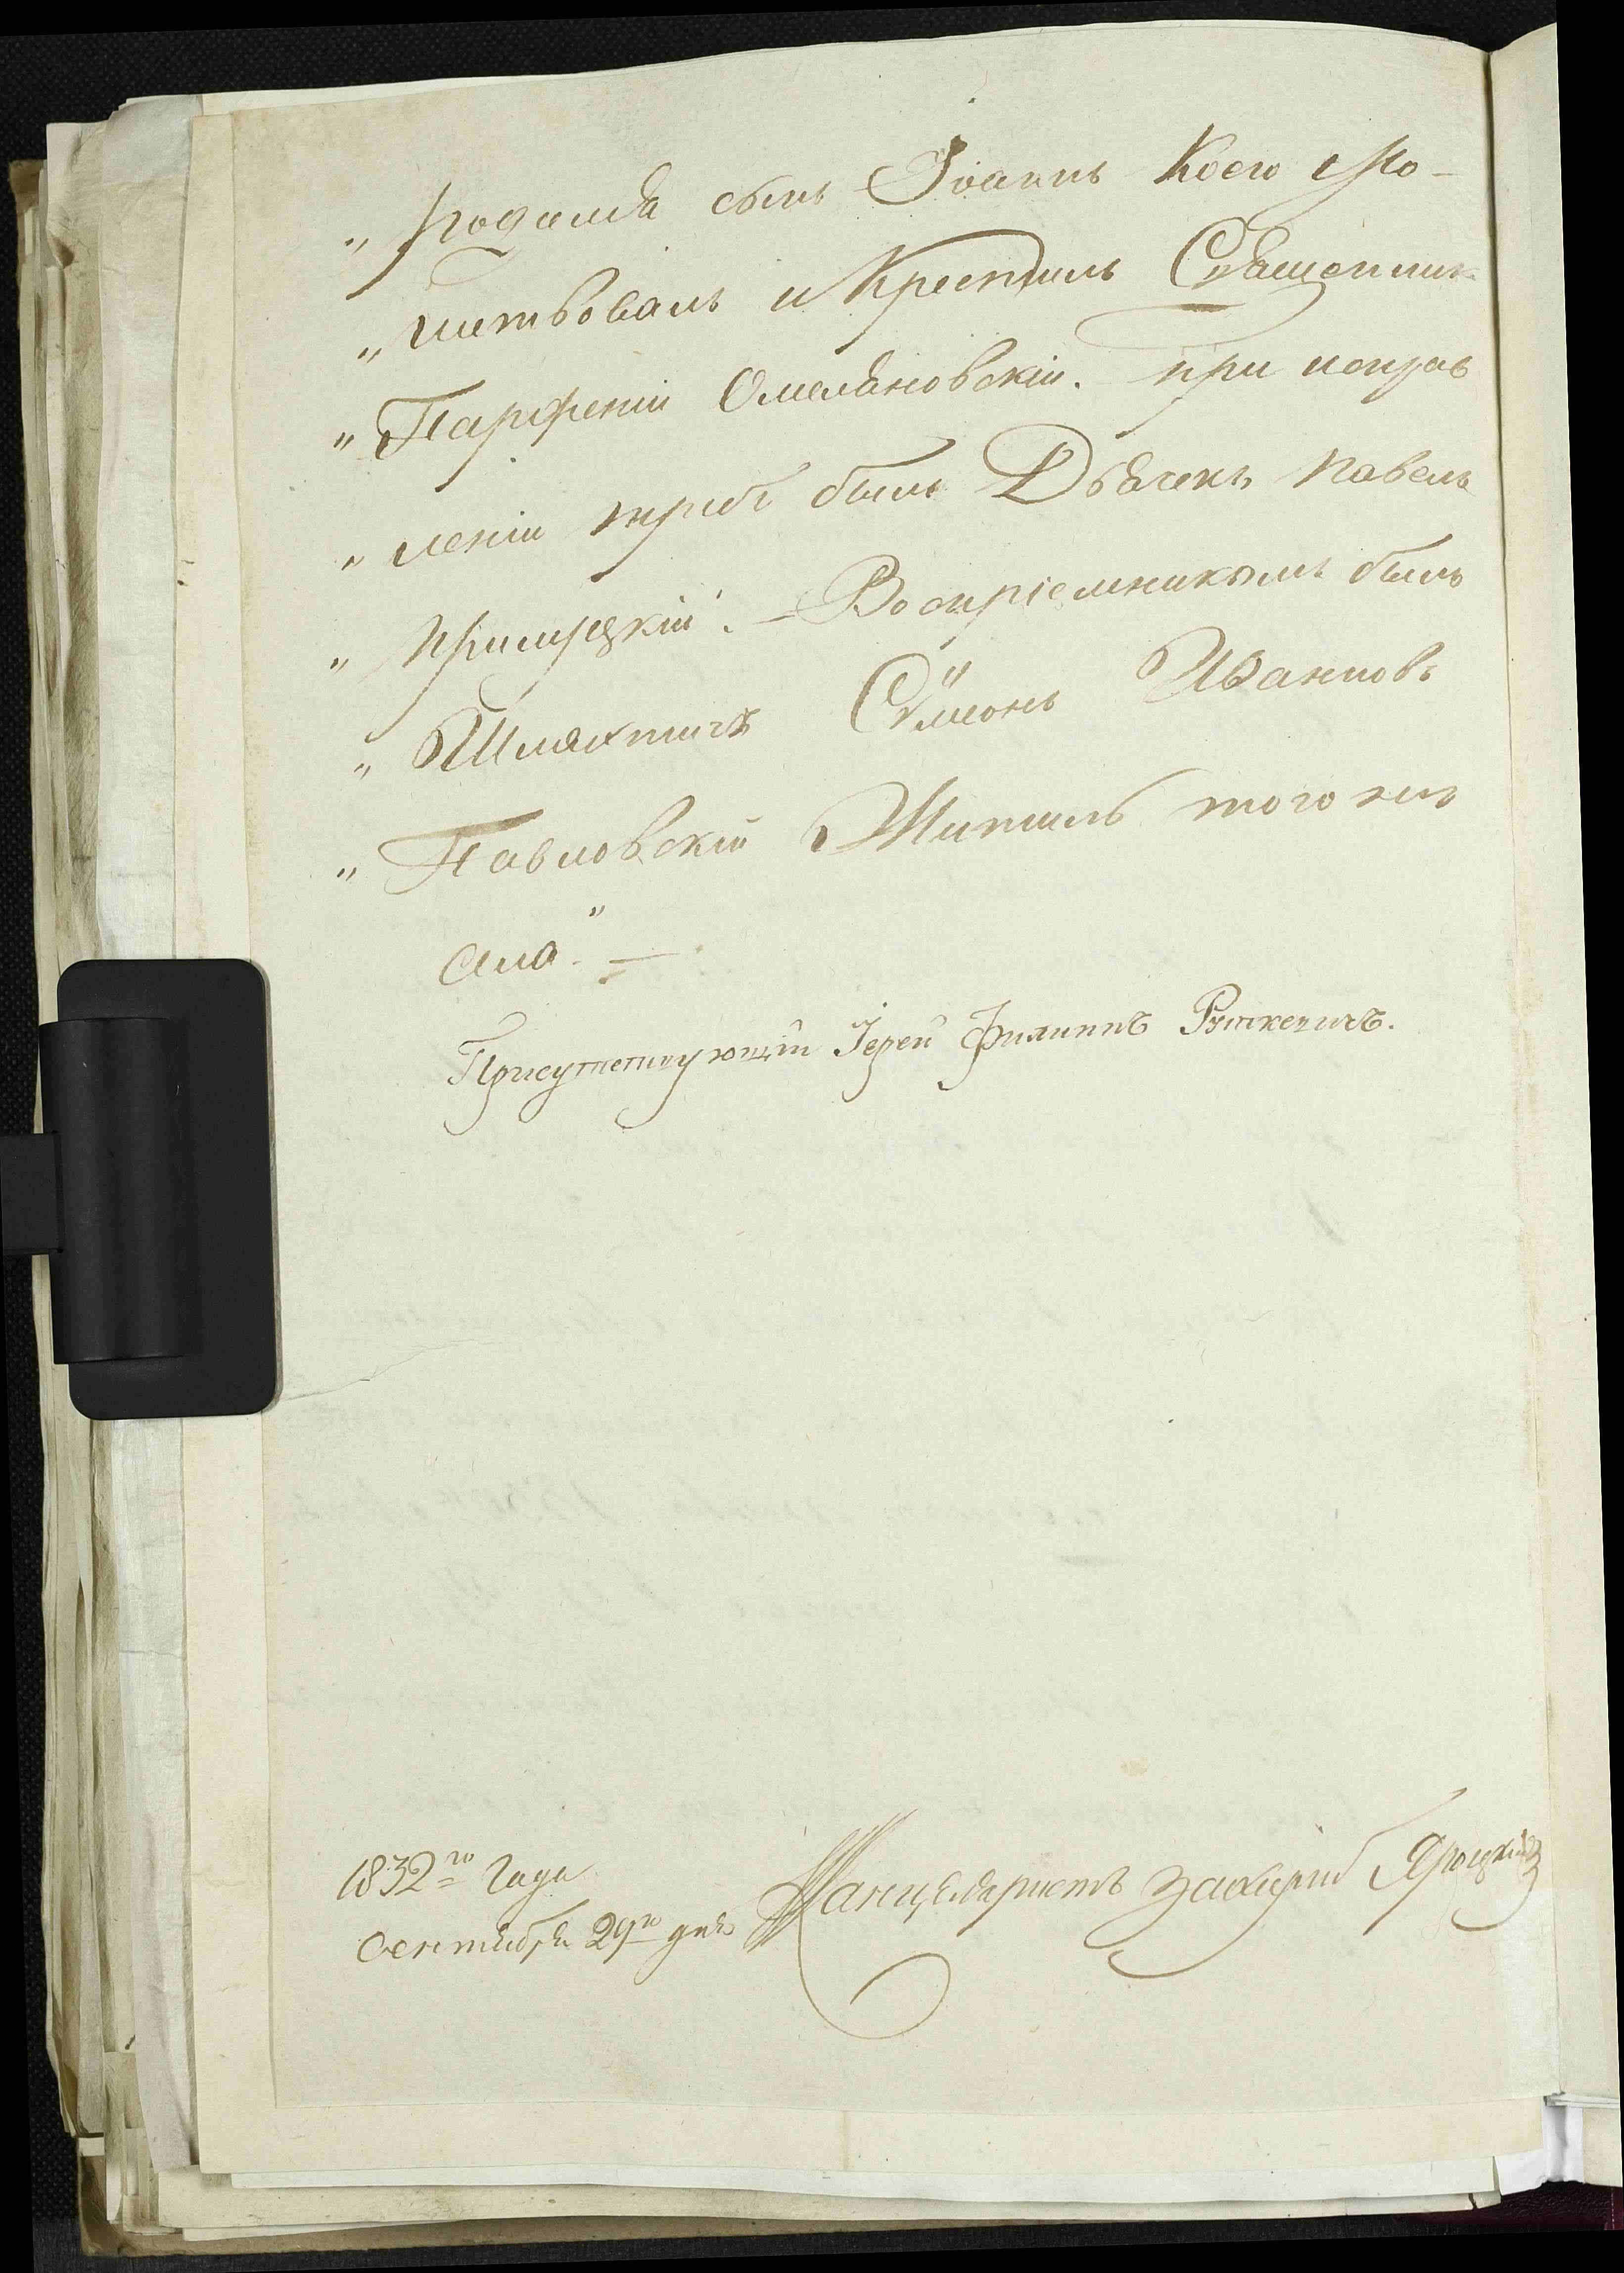 „ родился сынъ Іоаннъ Коего Мо-
„ литвовалъ и Крестилъ Священник
„ Парфеній Омеляновскій. при исправ
„ леніи требъ былъ Дьячекъ Павелъ
„ Крилицкій. – Воспріемникомъ былъ
„ Шляхтичъ Сѵмеонъ Ивановъ
„ Павловскій Житель того же
села“. –
Присутствующій Іерей Филиппъ Рыткевичъ.
1832го Года
Сентября 29го дня
Канцеляристъ Захарій Яроцкій